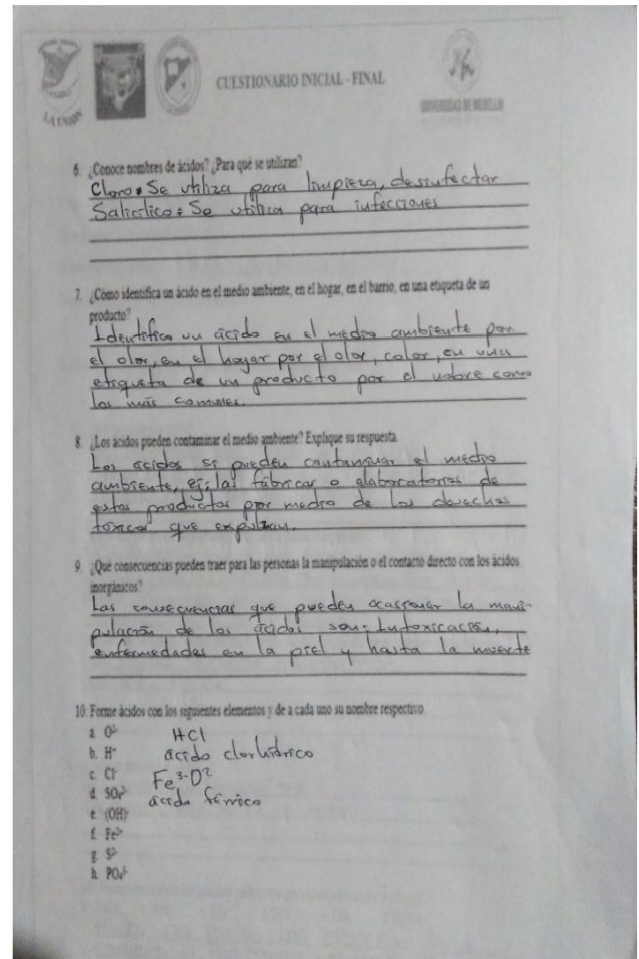 LA UNIÓN
CUESTIONARIO INICIAL - FINAL
UNIVERSIDAD DE MEDELLIN
6. ¿Conoce nombres de ácidos? ¿Para qué se utilizan?
Cloro: Se utiliza para limpieza, desinfectar
Salicilico: Se utiliza para infecciones
7. ¿Cómo identifica un ácido en el medio ambiente, en el hogar, en el barrio, en una etiqueta de un
producto?
Identifico un ácido en el medio ambiente por
el olor, en el hogar por el olor, color, en una
etiqueta de un producto por el nobre como
los más comunes.
8. ¿Los ácidos pueden contaminar el medio ambiente? Explique su respuesta.
Los acidos si pueden contaminar el medio
ambiente, ej: las fabricas o elaboratorios de
estos productos por medio de los desechos
toxicos que expulsan.
9. ¿Qué consecuencias pueden traer para las personas la manipulación o el contacto directo con los ácidos
inorgánicos?
Las consecuencias que pueden ocasionar la mani-
pulación de los ácidos son: Intoxicación,
enfermedades en la piel y hasta la muerte
10. Forme ácidos con los siguientes elementos y de a cada uno su nombre respectivo.
a. O²⁻ HCl
b. H⁺ ácido clorhídrico
c. Cl⁻ Fe³⁻O²
d. SO₄²⁻ ácido férrico
e. (OH)⁻
f. Fe³⁺
g. S²⁻
h. PO₄³⁻